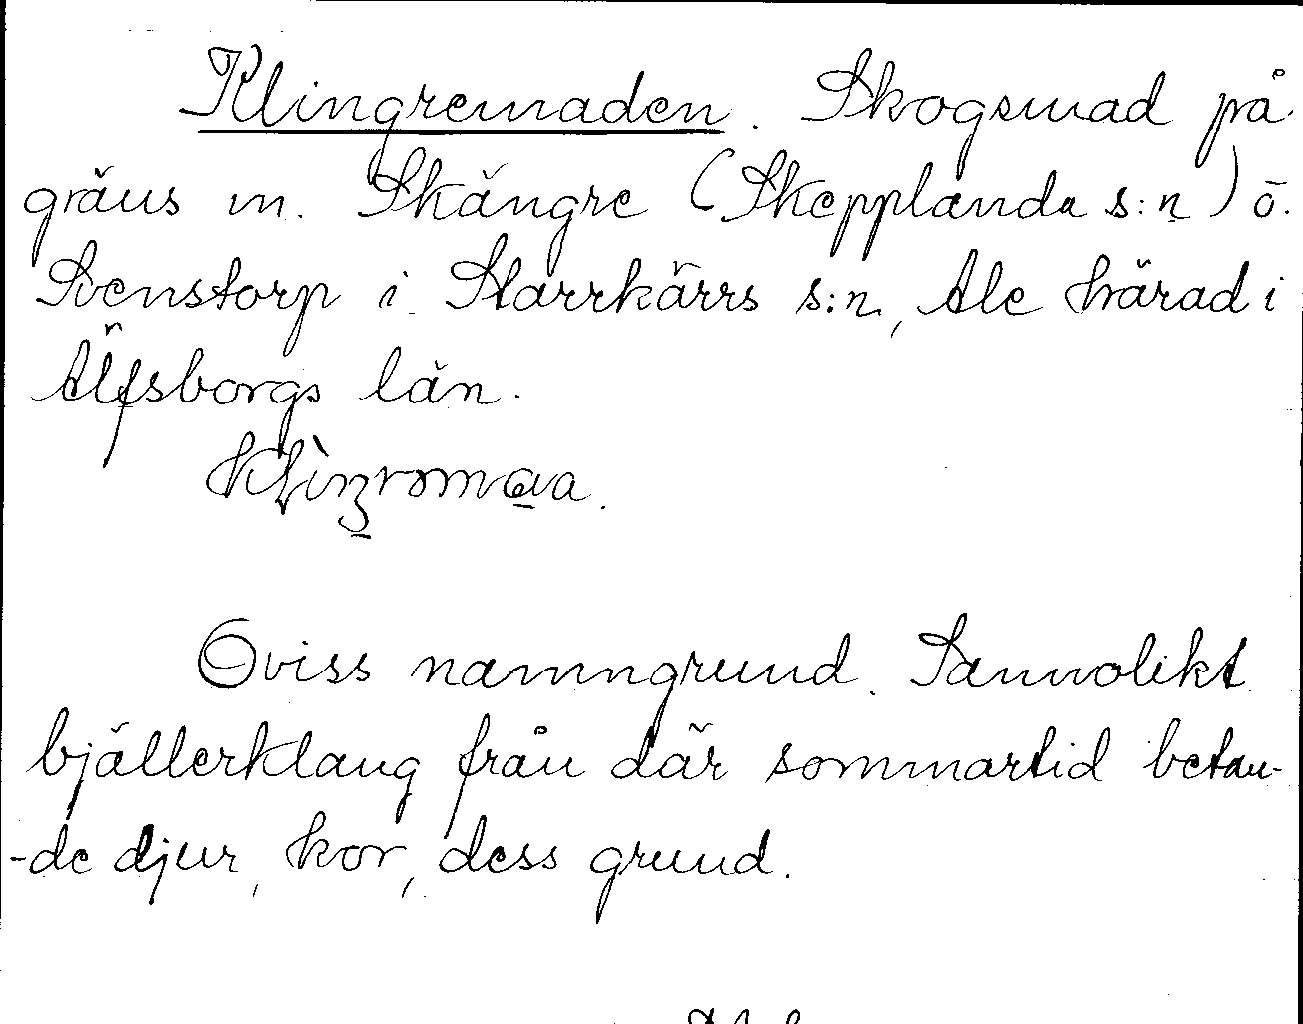 Klingremaden. Skogsmad på
gräns m. Skängre (Skepplanda s:n) ö.
Svenstorp i Starrkärrs s:n, Ale härad i
Älfsborgs län.
Oviss namngrund. Sannolikt
bjällerklang från där sommartid betan-
-de djur, kor, dess grund.